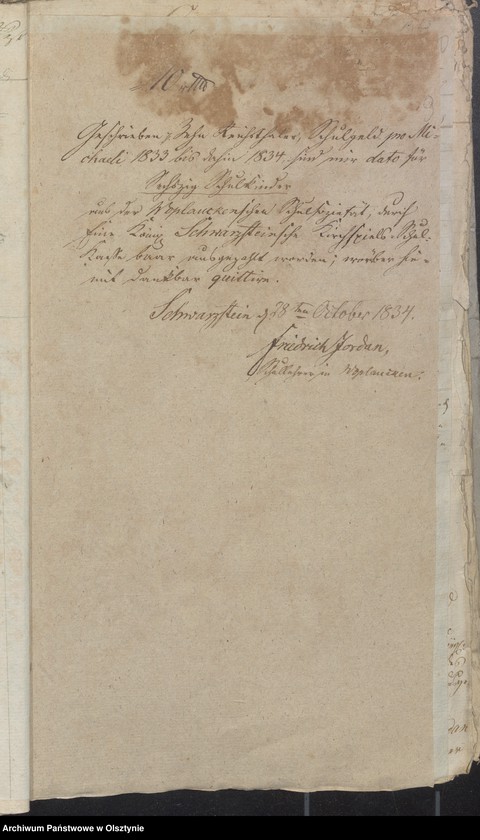 10 rthl
Geschrieben Zehn Reichsthaler, Schulgeld pro Mi-
chaeli 1833 bis dahin 1834. sind mir dato für
Sechszig Schulkinder
aus der Woplauckenschen Schulsozietät, durch
Eine Königl Schwarzsteinsche Kirchspiels-Schul-
Kasse baar ausgezahlt worden; worüber hie-
mit dankbar quittire.
Schwarzstein d 28ten October 1834.
Friedrich Jordan,
Schullehrer in Woplaucken.
Archiwum Państwowe w Olsztynie